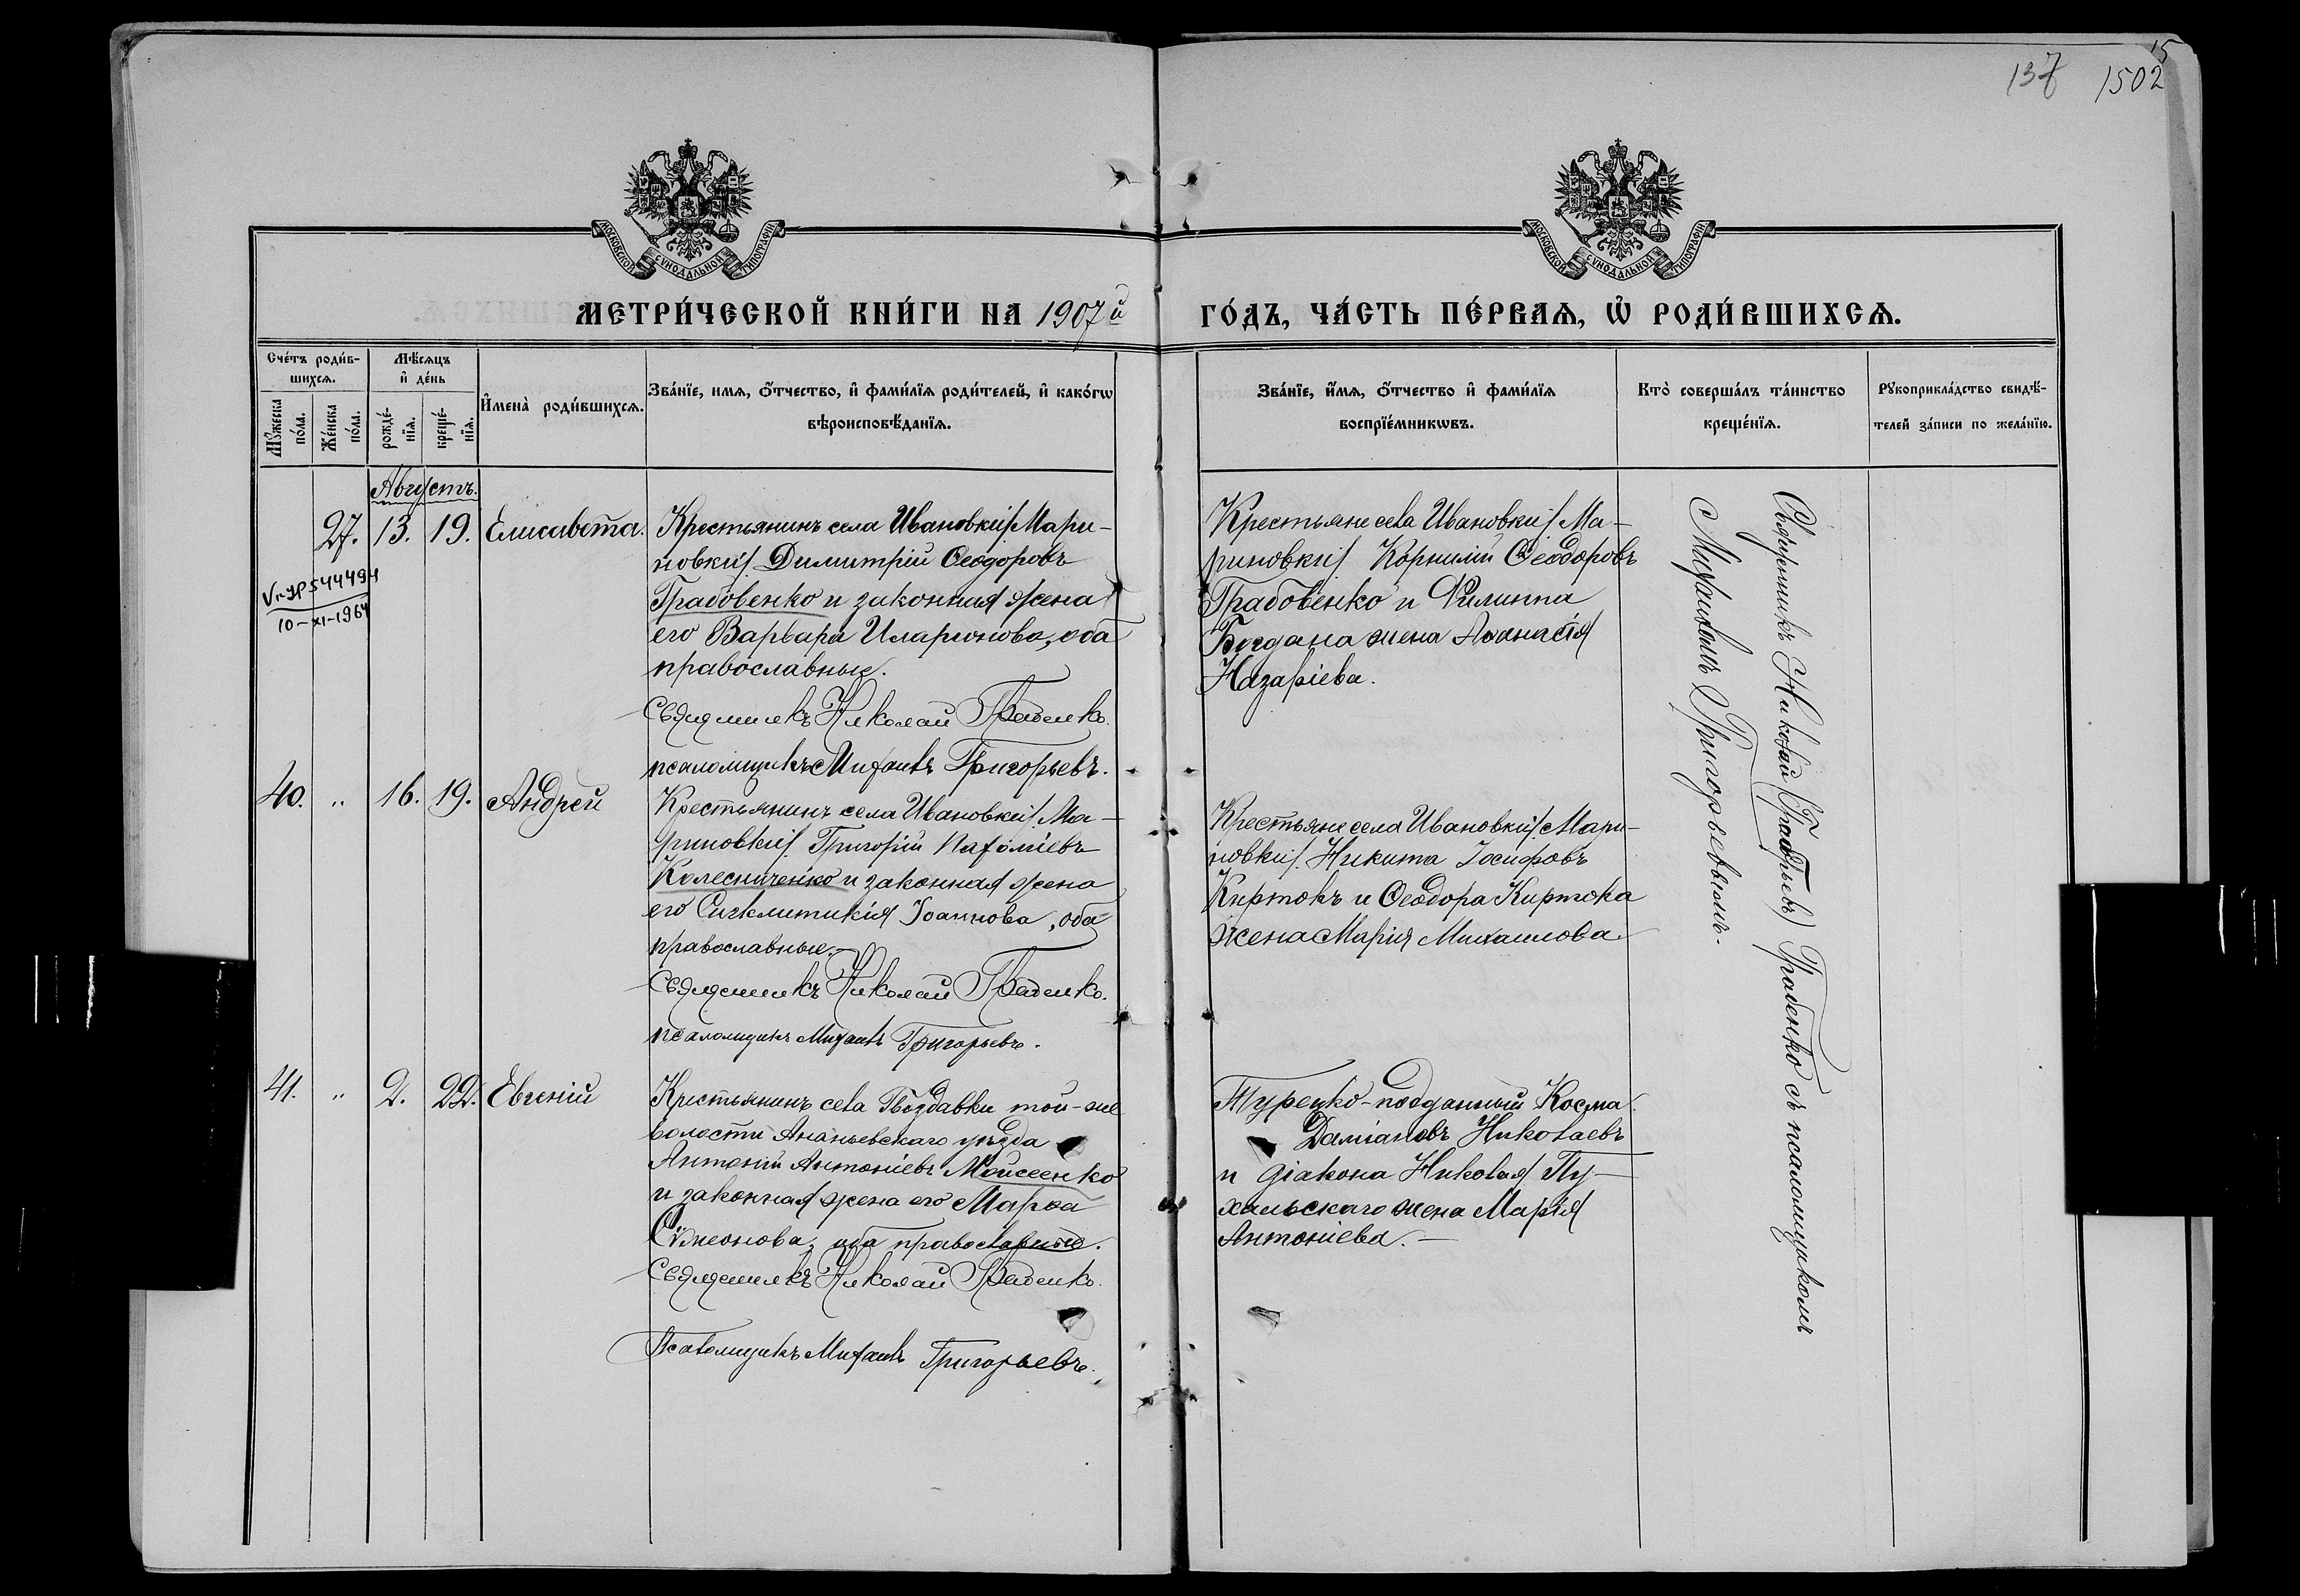 15
137 1502
МОСКОВСКОЙ СѴНОДАЛЬНОЙ ТИПОГРАФІИ
МОСКОВСКОЙ СѴНОДАЛЬНОЙ ТИПОГРАФІИ
МЕТРИ́ЧЕСКОЙ КНИ́ГИ НА 1907й
ГО́ДЪ, ЧА́СТЬ ПЕ́РВАѦ, Ѡ҆ РОДИ́ВШИХСѦ.
Сче́тъ роди́в-
шихсѧ.
Мѣ́сѧцъ
и҆ де́нь
Мꙋ́жеска по́ла.
Же́нска по́ла.
рожде́-
нїѧ.
креще́-
нїѧ.
И҆мена̀ роди́вшихсѧ.
Зва́нїе, имѧ, ѻ҆́тчество, и҆ фами́лїѧ роди́телей, и҆ како́гѡ
вѣроисповѣ́данїѧ.
Зва́нїе, и҆́мѧ, ѻ҆́тчество и҆ фами́лїѧ
воспрїе́мникѡвъ.
Кто̀ соверша́лъ та́инство
креще́нїѧ.
Рꙋкоприкла́дство свидѣ́-
телей за́писи по жела́нїю.
Августъ.
27. 13. 19. Елисавета.
Крестьянинъ села Ивановки/Мари-
новки/ Димитрій Ѳеодоровъ
Грабовенко и законная жена
его Варвара Иларионова, оба
православные.
Священникъ Николай Грабенко.
псаломщикъ Михаилъ Григорьевъ.
544494
10-XI-1964
Крестьяне села Ивановки/Ма-
риновки/ Корнилій Ѳеодоровъ
Грабовенко и Филиппа
Богдана жена Аѳанасія
Назаріева.
40. " 16. 19. Андрей
Крестьянинъ села Ивановки/Ма-
риновки/ Григорій Пафоміевъ
Колесниченко и законная жена
его Сигклитикія Іоаннова, оба
православные.
Священникъ Николай Грабенко.
псаломщикъ Михаилъ Григорьевъ.
Крестьяне села Ивановки/Мари-
новки/. Никита Іосифовъ
Киртокъ и Ѳеодора Киртока
жена Марія Михаилова
41. " 2. 22. Евгеній
Крестьянинъ села Гвоздавки той-же
волости Ананьевскаго уѣзда
Антоній Антоніевъ Мойсеенко
и законная жена его Марѳа
Сѵмеонова, оба православные.
Священникъ Николай Грабенко.
Псаломщикъ Михаилъ Григорьевъ.
Турецко-подданный Косма
Даміановъ Николаевъ
и діакона Николая Пу-
хальскаго жена Марія
Антоніева.
Священникъ Николай Грабенко съ псаломщикомъ
Михаиломъ Григорьевымъ.